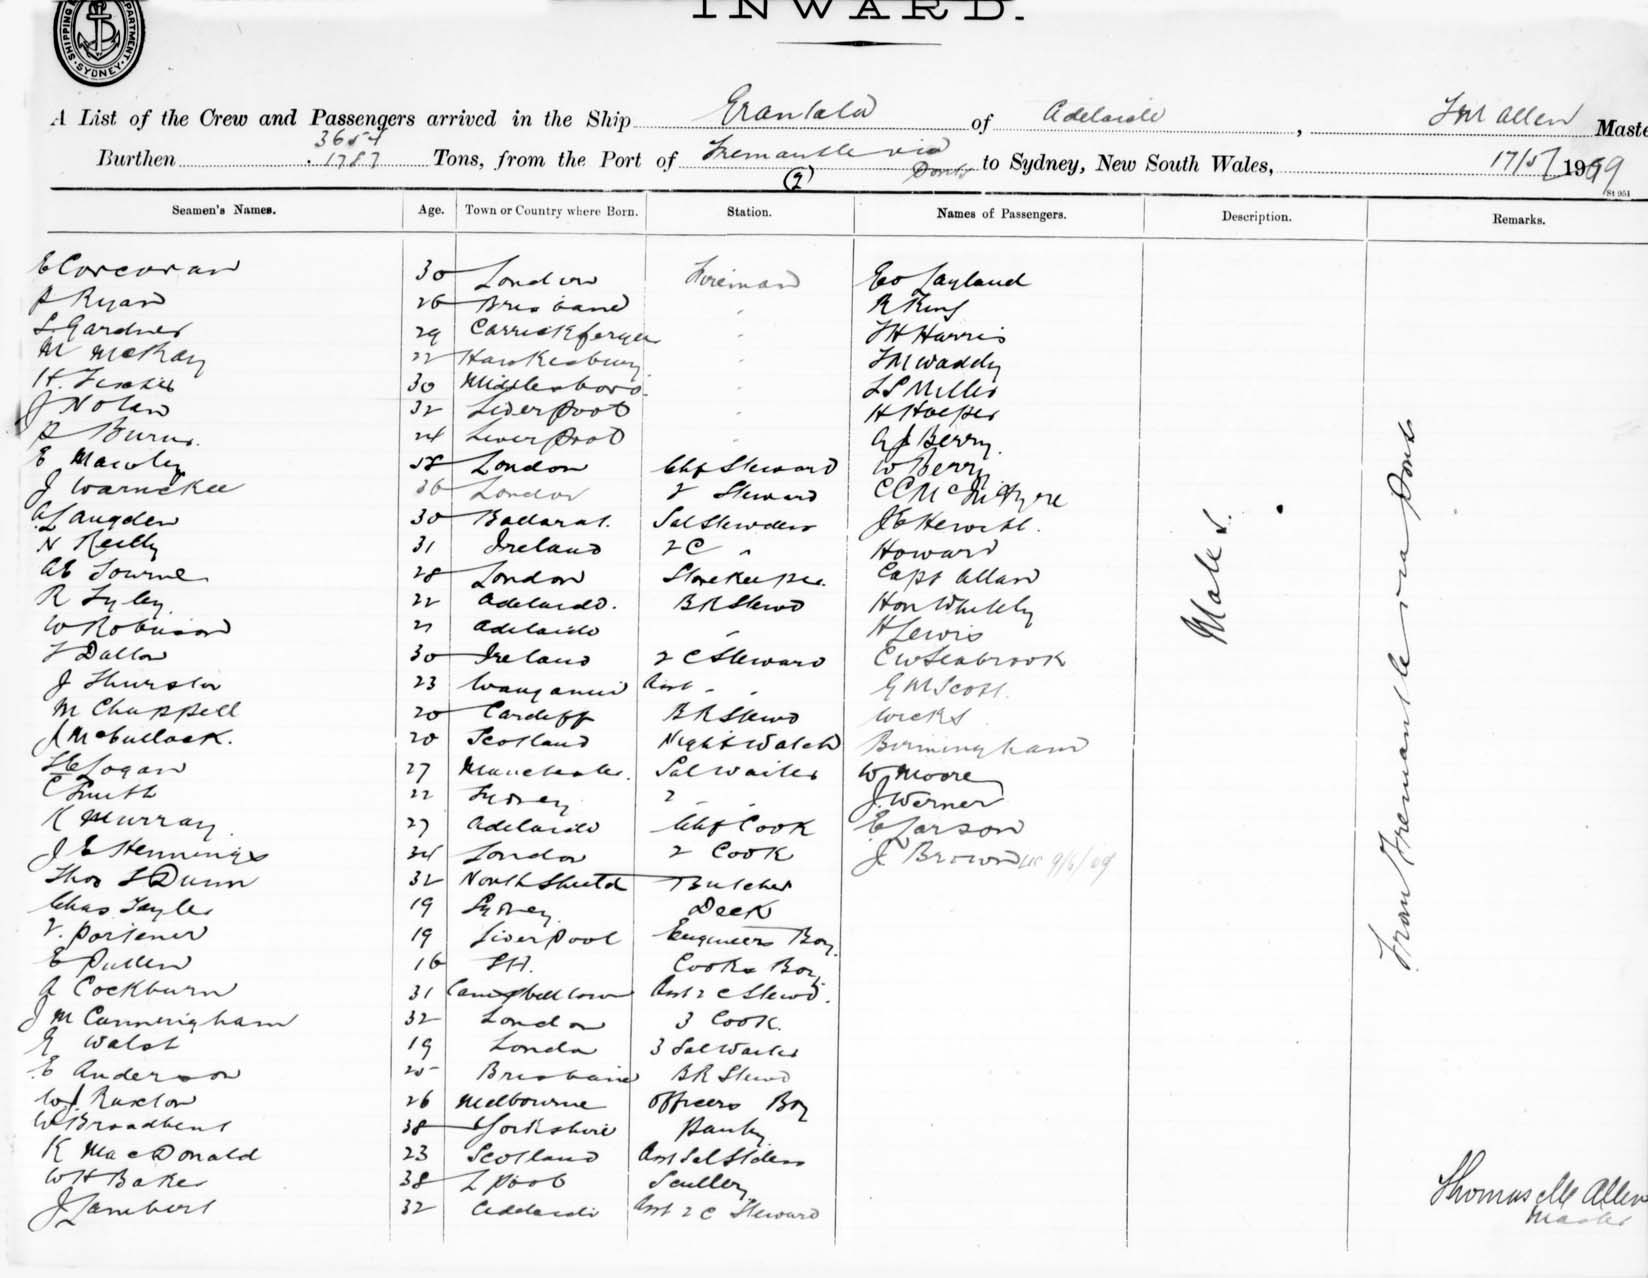 INWARD.
SHIPPING DEPARTMENT SYDNEY
A List of the Crew and Passengers arrived in the Ship Grantala of Adelaide, T M Allen Maste
Burthen 3654 1787 Tons, from the Port of Fremantle via Ports to Sydney, New South Wales, 17/5/ 1909
(2)
Seamen's Names. Age. Town or Country where Born. Station. Names of Passengers. Description. Remarks.
E Corcoran 30 London Fireman Layland
P Ryan 26 Brisbane " R King
S Gardner 29 Carrickfergus " T H Harris
M McKay 22 Hawkesbury " T M Waddy
H. 30 Middlesboro. " L S Miller
J Nolan 32 Liverpool " H Hooper
P Burns. 24 Liverpool " A J Berry
E Mawley 58 London Chf Steward W Berry
J Warnekee 36 London 2 Steward C C McIntyre
A Langden 30 Ballarat. Sal Stewdess J E Hewitt.
N Reilly 31 Ireland 2 C " Howard
A E 28 London Storekeeper. Capt Allan
R 22 Adelaide. B R Stewd Hon Whitely
W Robinson 21 Adelaide " H Lewis
T Dalton 30 Ireland 2 C Steward C W Seabrook
J Thurston 23 Wanganui Asst " " G M Scott.
M Chappell 20 Cardiff B R Stewd Wicks
J McCullock. 20 Scotland Night Watch Birmingham
Logan 27 Manchester. Sal Waiter W Moore
C Smith 22 Sydney 2 " " J. Werner
K Murray 27 Adelaide Chf Cook E Larson
J E Hennings 24 London 2 Cook J Brown 9/6/09
Thos S Dunn 32 North Shields Butcher
Chas Tayler 19 Sydney Deck
V. Portener 19 Liverpool Engineers Boy.
E Pullen 16 Cooks Boy
A Cockburn 31 Campbelltown Asst 2 C Stewd.
J M Cunningham 32 London 3 Cook.
G Walsh 19 London 3 Sal Waiter
E Anderson 25 Brisbane B R Stewd
W J. Ruxton 26 Melbourne Officers Boy
W Broadbent 38 Yorkshire Pantry
K MacDonald 23 Scotland Asst Sal Stdess
W H Baker 38 L pool Scullery
J Lambert 32 Adelaide Asst 2 C Steward
Males.
From Fremantle via Ports
Thomas M Allen
Master